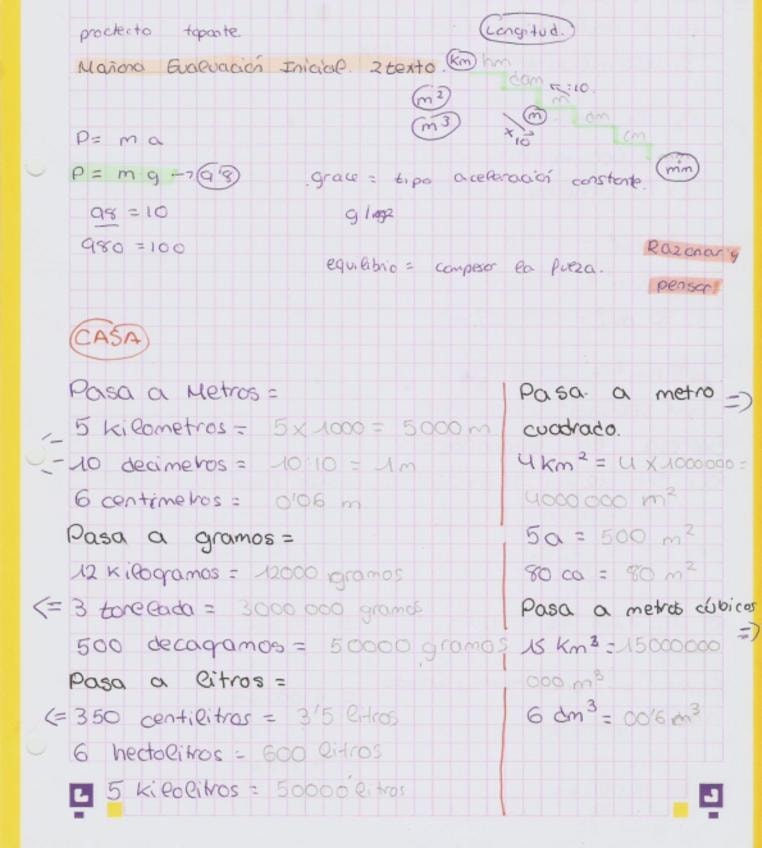 proctecto topante
Longitud.
Mañana Evaluación Inicial. 2 texto.
km hm
dam
:10
m
dm
cm
mm
m²
m³
m
x10
P = m a
P = m g → 9'8
98 = 10
980 = 100
grave = tipo aceleración constante.
equilibrio = compesar la fuerza.
Razonar y
pensar!
CASA
Pasa a Metros =
5 kilometros = 5 x 1000 = 5000 m
10 decimetros = 10:10 = 1 m
6 centimetros = 0'06 m
Pasa a gramos =
12 Kilogramos = 12000 gramos
<= 3 tonelada = 3000 000 gramos
500 decagamos = 50000 gramos
Pasa a litros =
<= 350 centilitros = 3'5 litros
6 hectolitros = 600 litros
5 kilolitros = 50000 litros
Pasa a metro =>
cuadrado.
4 Km² = 4 x 1000000 =
4000 000 m²
5 a = 500 m²
80 ca = 80 m²
Pasa a metros cúbicos =>
15 Km³ = 15000000
000 m³
6 dm³ = 00'6 m³